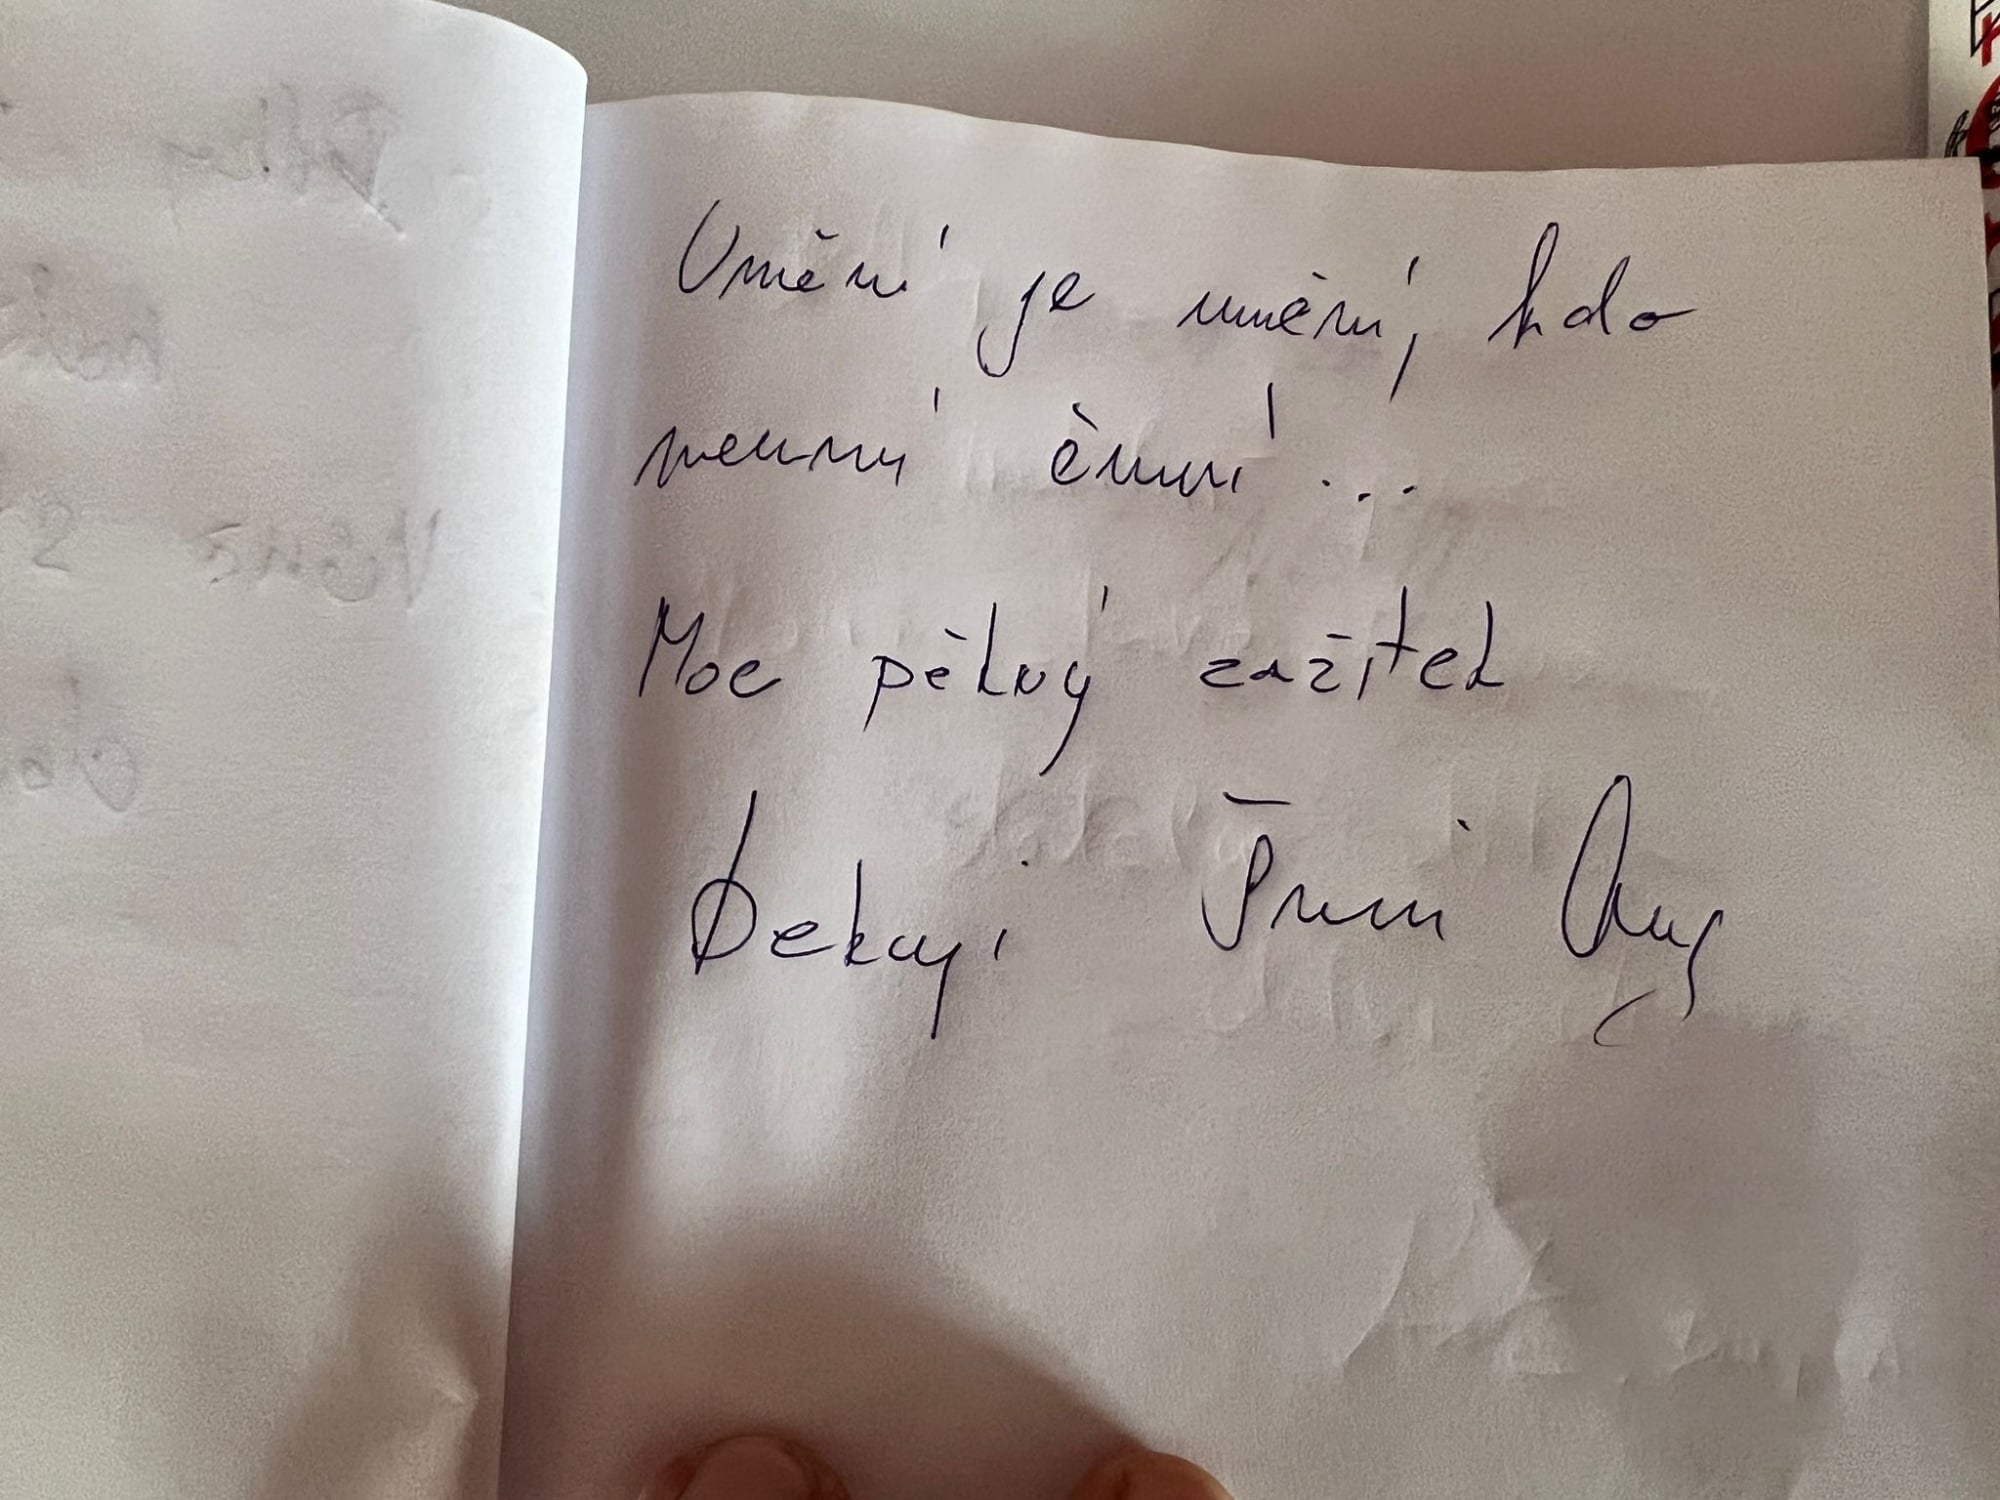 Umění je umění, kdo
neumí čumí...
Moc pěkný zažitek
Dekuji